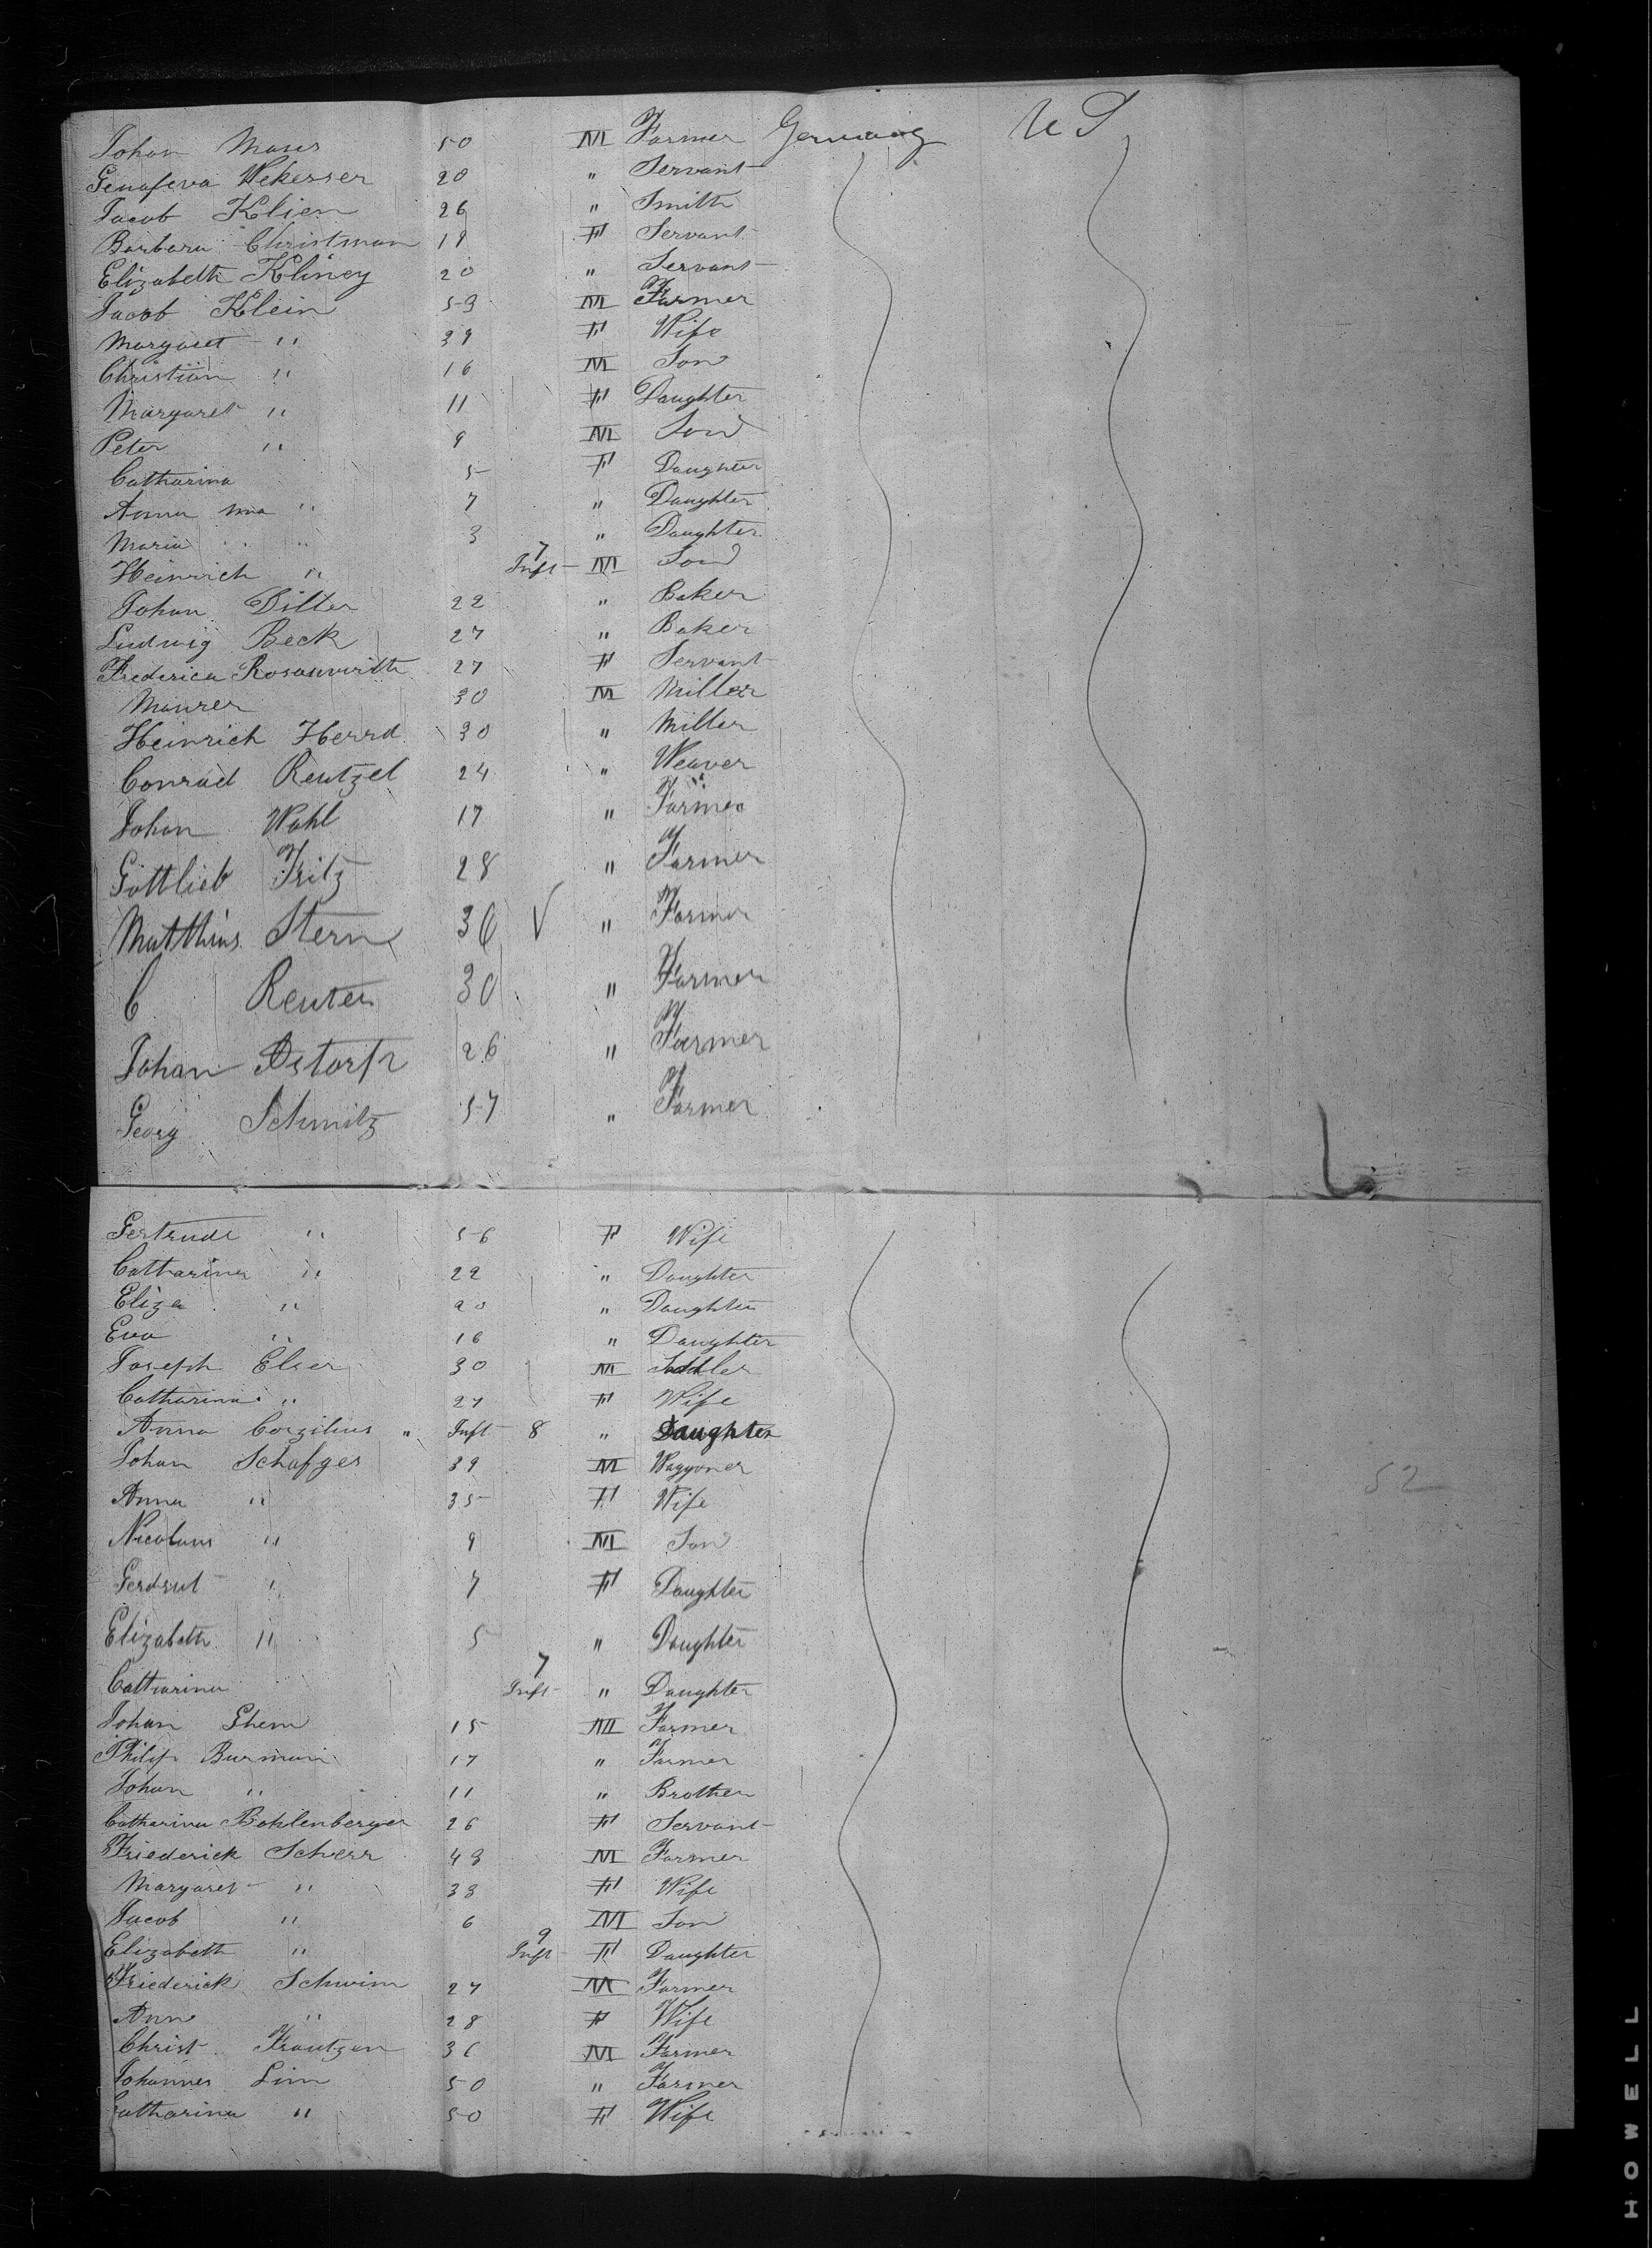 Johan Maus 50 M Farmer Germany U S
Genofeva Wekesser 20 " Servant
Jacob Klien 26 " Smith
Barbara Christman 19 F Servant
Elizabeth Kliney 20 " Servant
Jacob Klein 53 M Farmer
Margaret " 39 F Wife
Christian " 16 M Son
Margaret " 11 F Daughter
Peter " 9 M Son
Catharina 5 F Daughter
Anna Ma " 7 " Daughter
Maria " " 3 " Daughter
Heinrich " 7 Inft M Son
Johan Ditter 22 " Baker
Ludwig Beck 27 " Baker
Frederica Rosanwirth 27 F Servant
Maurer 30 M Miller
Heinrich Herrd 30 " Miller
Conrad Reutzel 24 " Weaver
Johan Wahl 17 " Farmer
Gottlieb Fritz 28 " Farmer
Matthias Stern 36 V " Farmer
C Reuter 30 " Farmer
Johan Astorph 26 " Farmer
Georg Schmitz 57 " Farmer
Gertrude " 56 F Wife
Catharina " 22 " Daughter
Eliza " 20 " Daughter
Eva " 16 " Daughter
Joseph Elser 30 M Sadler
Catharina " 27 F Wife
Anna Corzilius " Inft 8 " Daughter
Johan Schafges 39 M Waggoner
Anna " 35 F Wife
Nicolaus " 9 M Son
Gerdrut " 7 F Daughter
Elizabeth " 5 " Daughter
Catharina 7 Inft " Daughter
Johan Ghem 15 M Farmer
Philip Burmann 17 " Farmer
Johan " 11 " Brother
Catharina Bohlenberger 26 F Servant
Friederick Scherr 43 M Farmer
Margaret " 33 F Wife
Jacob " 6 M Son
Elizabeth " 9 Inft F Daughter
Friederick Schwim 27 M Farmer
Ann " 28 F Wife
Christ Frantzen 36 M Farmer
Johannes Linn 50 " Farmer
Catharina " 50 F Wife
52
HOWELL